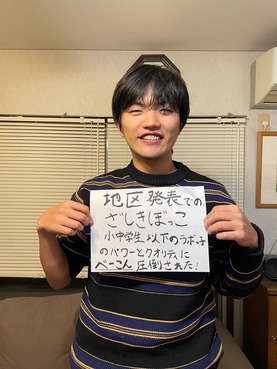 地区発表での
ざしきぼっこ
小中学生以下のラボっ子
のパワーとクオリティに
べーこん 圧倒された!